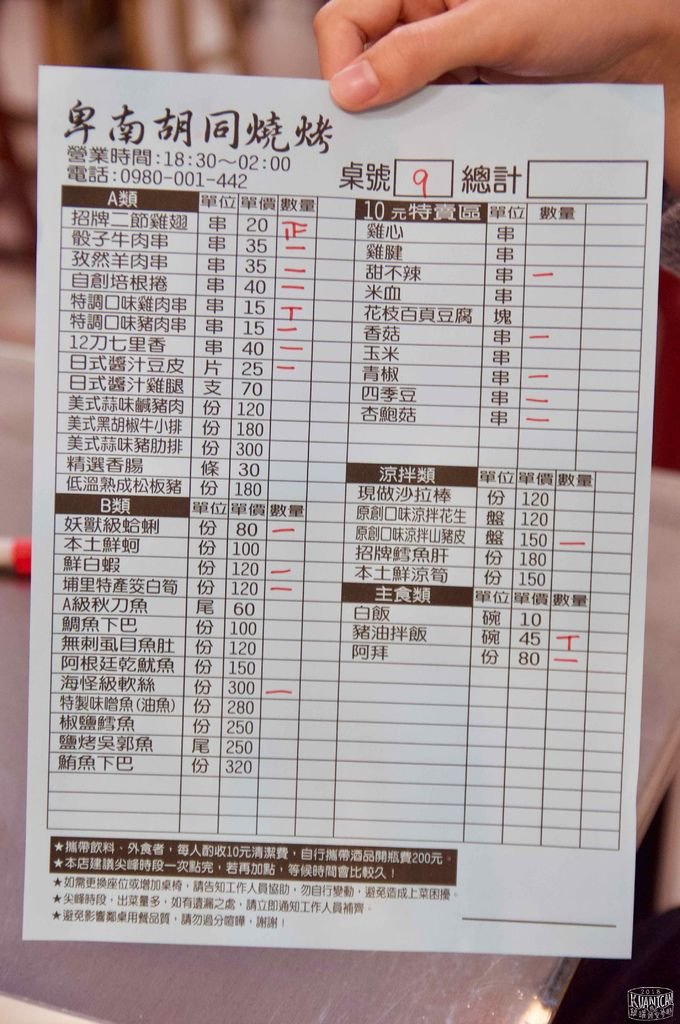 卑南胡同燒烤
營業時間:18:30～02:00
電話:0980-001-442
桌號 9 總計
A類 單位 單價 數量
招牌二節雞翅 串 20 正
骰子牛肉串 串 35 一
孜然羊肉串 串 35 一
自創培根捲 串 40 一
特調口味雞肉串 串 15 T
特調口味豬肉串 串 15 一
12刀七里香 串 40 一
日式醬汁豆皮 片 25 一
日式醬汁雞腿 支 70
美式蒜味鹹豬肉 份 120
美式黑胡椒牛小排 份 180
美式蒜味豬肋排 份 300
精選香腸 條 30
低溫熟成松板豬 份 180
B類 單位 單價 數量
妖獸級蛤蜊 份 80 一
本土鮮蚵 份 100
鮮白蝦 份 120 一
埔里特產筊白筍 份 120 一
A級秋刀魚 尾 60
鯛魚下巴 份 100
無刺虱目魚肚 份 120
阿根廷乾魷魚 份 150
海怪級軟絲 份 300 一
特製味噌魚(油魚) 份 280
椒鹽鱈魚 份 250
鹽烤吳郭魚 尾 250
鮪魚下巴 份 320
10元特賣區 單位 數量
雞心 串
雞腱 串
甜不辣 串 一
米血 串
花枝百頁豆腐 塊
香菇 串 一
玉米 串
青椒 串 一
四季豆 串 一
杏鮑菇 串 一
涼拌類 單位 單價 數量
現做沙拉棒 份 120
原創口味涼拌花生 盤 120
原創口味涼拌山豬皮 盤 150 一
招牌鱈魚肝 份 180
本土鮮涼筍 份 150
主食類 單位 單價 數量
白飯 碗 10
豬油拌飯 碗 45 T
阿拜 份 80 一
★攜帶飲料、外食者，每人酌收10元清潔費，自行攜帶酒品開瓶費200元。
★本店建議尖峰時段一次點完，若再加點，等候時間會比較久！
★如需更換座位或增加桌椅，請告知工作人員協助，勿自行變動，避免造成上菜困擾。
★尖峰時段，出菜量多，如有遺漏之處，請立即通知工作人員補齊。
★避免影響鄰桌用餐品質，請勿過分喧嘩，謝謝！
2018
KUANICAN